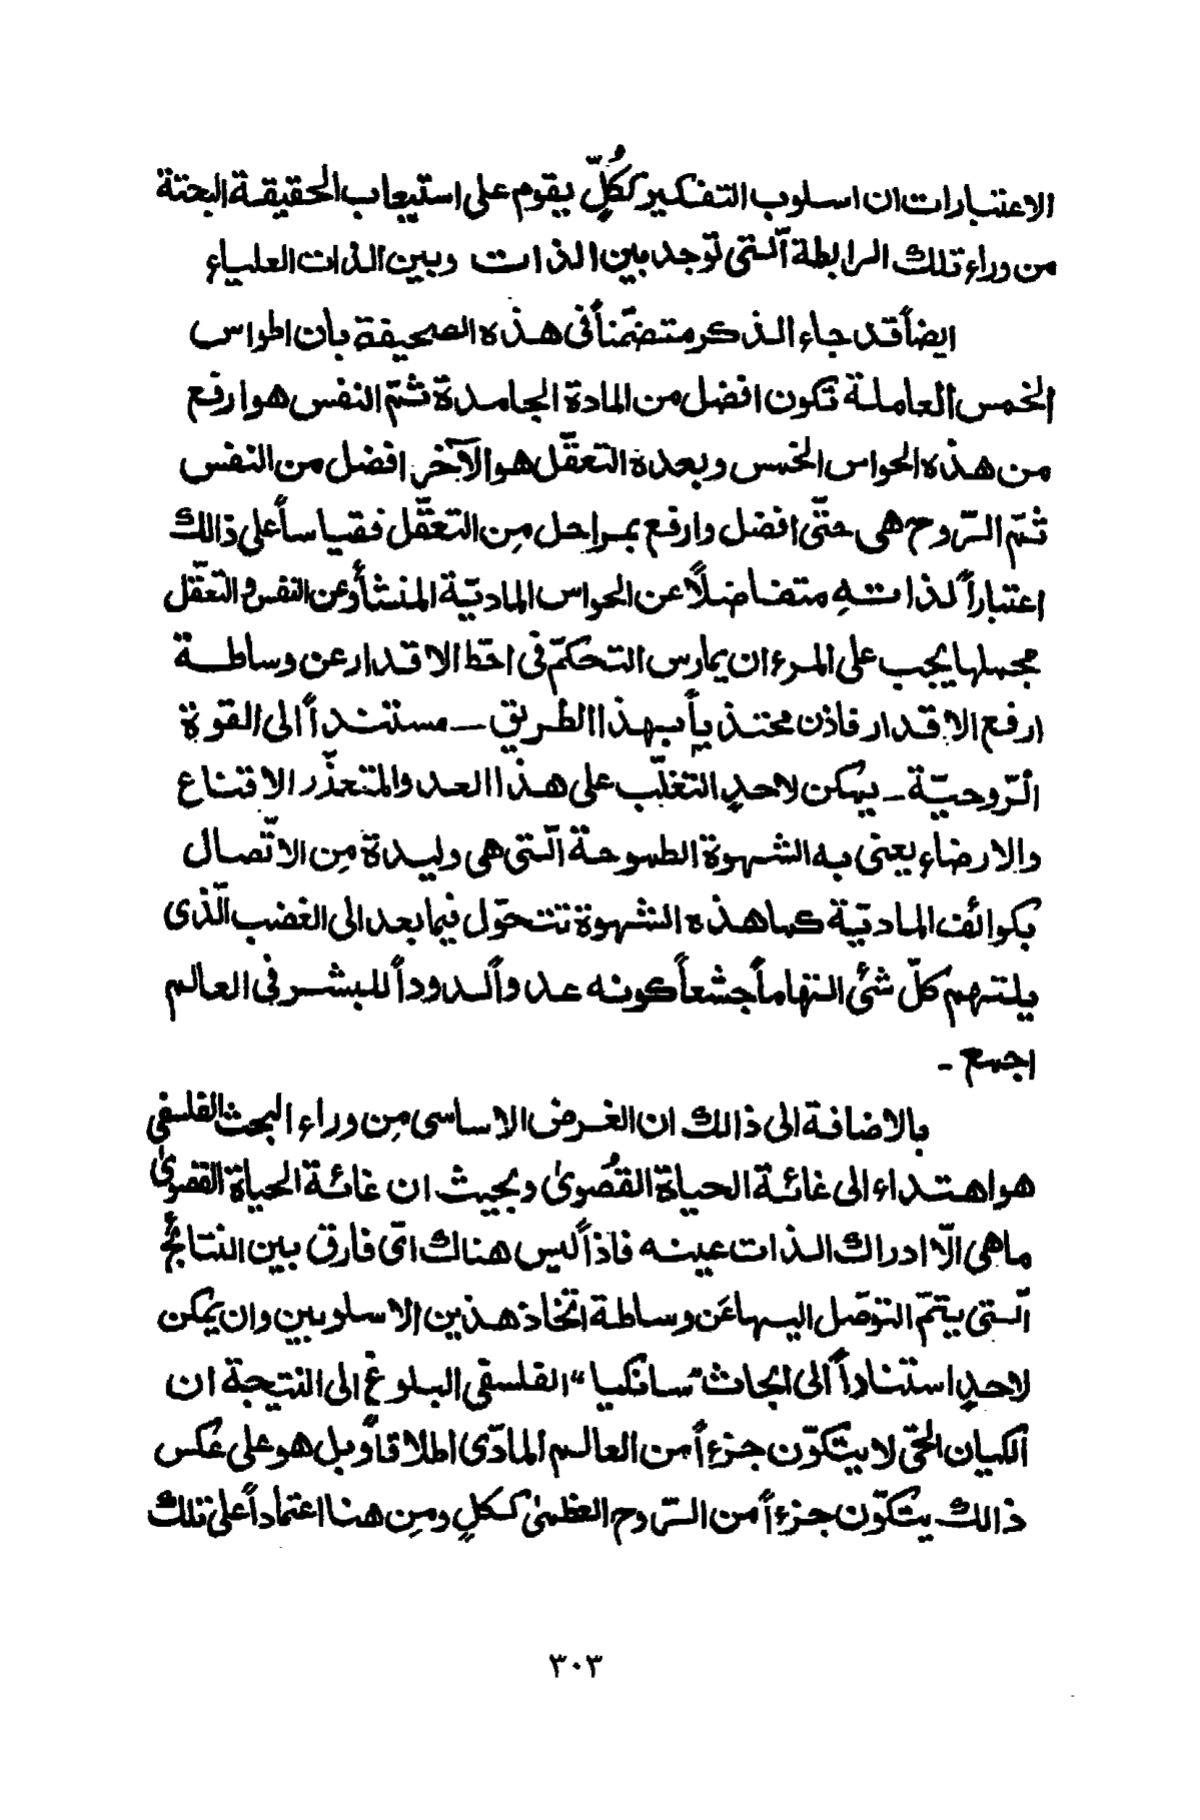 الاعتبارات ان اسلوب التفكير ككُلّ يقوم على استيعاب الحقيقة البحتة
من وراء تلك الرابطة الّتى توجد بين الذات وبين الذات العلياء
ايضاً قد جاء الذكر متضمّناً فى هذه الصحيفة بان اطواس
الخمس العاملة تكون افضل من المادة الجامدة ثمّ النفس هو ارفع
من هذه الحواس الخمس وبعده التعقّل هو الآخر افضل من النفس
ثمّ الرّوح هى حتّى افضل وارفع بمراحل مِن التعقّل فقياساً على ذالك
اعتباراً لذاتهِ متفاضلاً عن الحواس الماديّة المنشأ وعن النفس والتعقّل
مجملها يجب على المرء ان يمارس التحكّم فى احّط الاقدار عن وساطة
ارفع الاقدار فاذن محتذياً بهذا الطريق – مستنداً الى القوة
الرّوحيّة – يمكن لاحدٍ التغلّب على هذا العدو المتعذّر الاقناع
والارضاء يعنى به الشهوة الطموحة الّتى هى وليدة مِن الاتّصال
بكوائف الماديّة كما هذه الشهوة تتحوّل فيما بعد الى الغضب الّذى
يلتهم كلّ شئ التهاماً جشعاً كونه عدواً لدوداً للبشر فى العالم
اجمع –
بالاضافة الى ذالك ان الغرض الاساسى مِن وراء البحث الفلسفى
هو اهتداء الى غائة الحياة القُصوىٰ وبحيث ان غائة الحياة القصوىٰ
ما هى الّا ادراك الذات عينه فاذاً ليس هناك اىّ فارق بين النتائج
الّتى يتمّ التوصّل اليها عَن وساطة اتخاذ هذين الاسلوبين وان يمكن
لاحدٍ استناداً الى ابحاث "سانكيا" الفلسفى البلوغ الى النتيجة ان
الكيان الحىّ لا يتكوّن جزءاً من العالم المادّى اطلاقاً وبل هو على عكس
ذالك يتكوّن جزءاً من الرّوح العظمىٰ ككلٍ ومِن هنا اعتماداً على تلك
٣٠٣